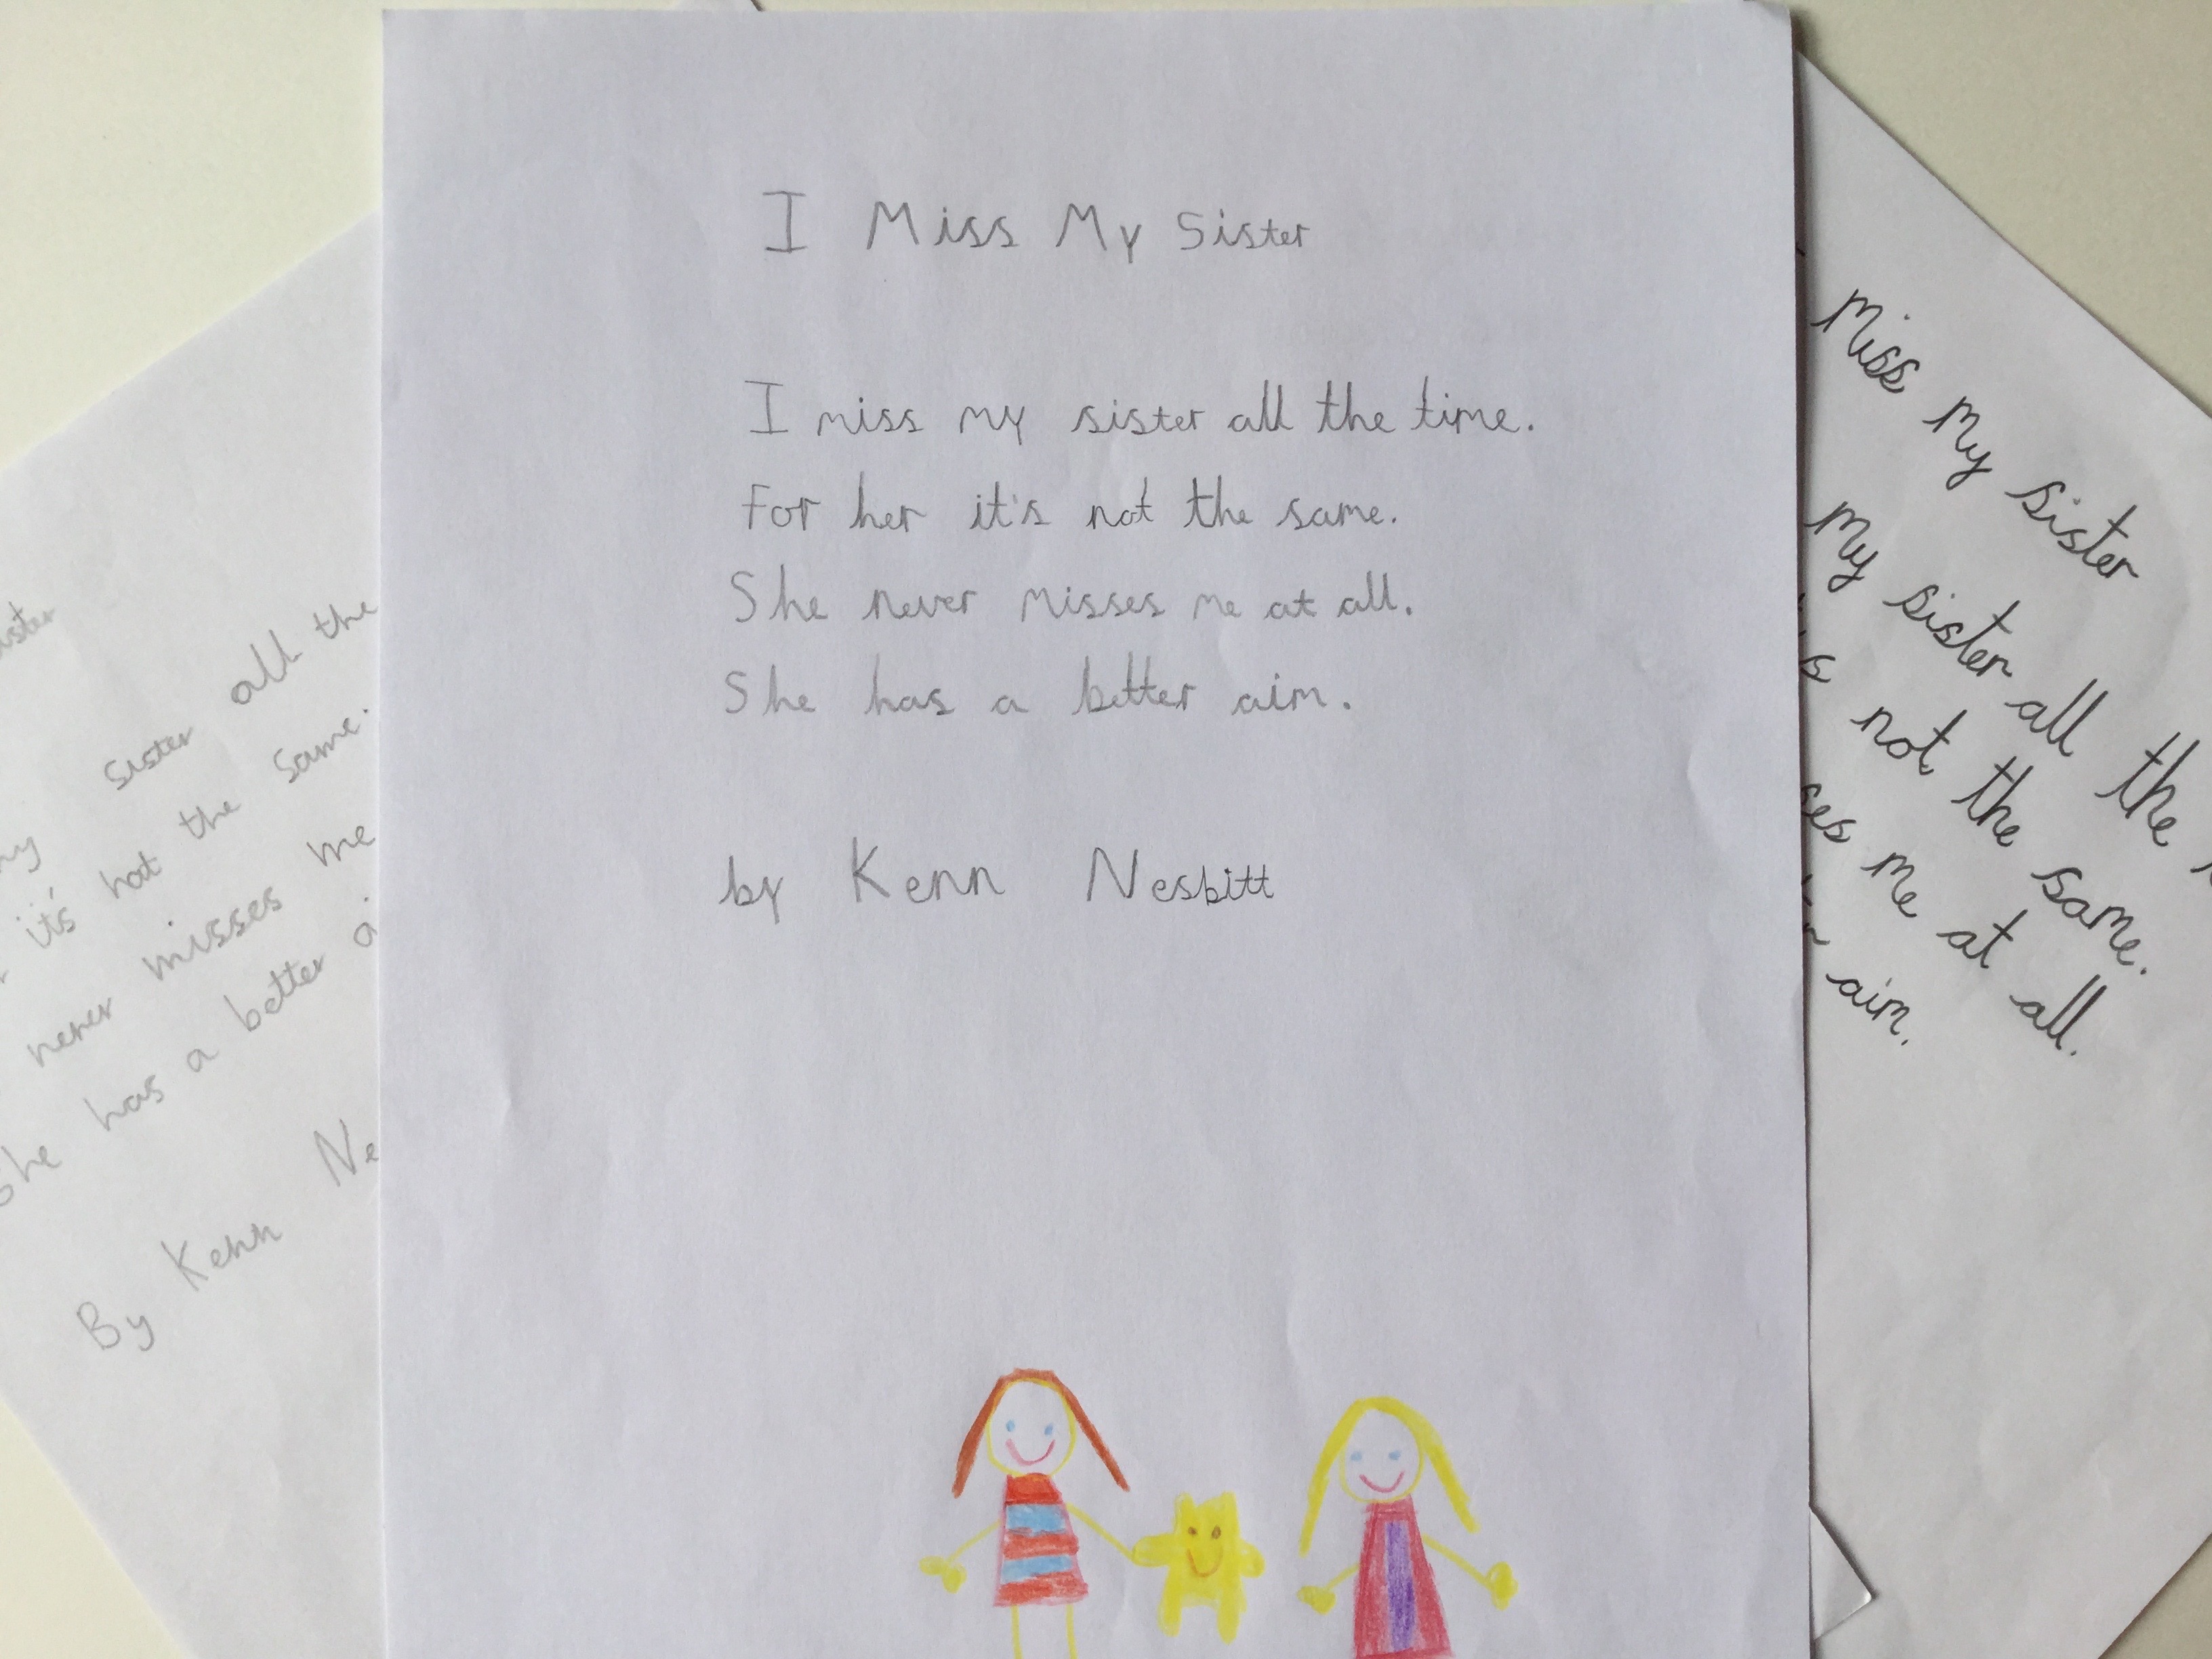 I Miss My Sister
I miss my sister all the time.
For her it's not the same.
She never misses me at all.
She has a better aim.
by Kenn Nesbitt
sister all the
it's not the same.
never misses me
She has a better
By Kenn
Miss My Sister
My sister all the
not the same.
me at all.
aim.